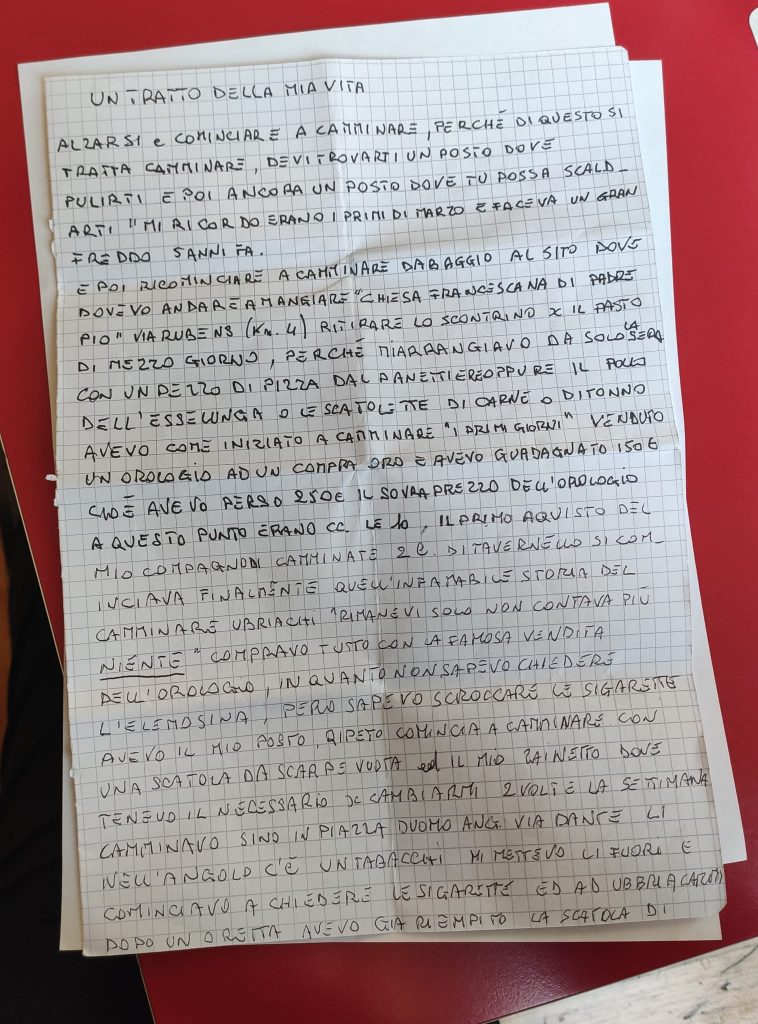 UN TRATTO DELLA MIA VITA
ALZARSI e COMINCIARE A CAMMINARE, PERCHÉ DI QUESTO SI
TRATTA CAMMINARE, DEVI TROVARTI UN POSTO DOVE
PULIRTI E POI ANCORA UN POSTO DOVE TU POSSA SCALD_
ARTI "MI RICORDO ERANO I PRIMI DI MARZO E FACEVA UN GRAN
FREDDO 5 ANNI FA.
E POI RICOMINCIARE A CAMMINARE DA BAGGIO AL SITO DOVE
DOVEVO ANDARE A MANGIARE "CHIESA FRANCESCANA DI PADRE
PIO" VIA RUBENS (Km. 4) RITIRARE LO SCONTRINO X IL PASTO
DI MEZZO GIORNO, PERCHÉ MI ARRANGIAVO DA SOLO LA SERA
CON UN PEZZO DI PIZZA DAL PANETTIERE OPPURE IL POLLO
DELL'ESSELUNGA O LE SCATOLETTE DI CARNE O DI TONNO
AVEVO COME INIZIATO A CAMMINARE "I PRIMI GIORNI" VENDUTO
UN OROLOGIO AD UN COMPRA ORO E AVEVO GUADAGNATO 150 €
CIOÈ AVEVO PERSO 250 € IL SOVRAPREZZO DELL'OROLOGIO
A QUESTO PUNTO ERANO CC. LE 10, IL PRIMO AQUISTO DEL
MIO COMPAGNO DI CAMMINATE 2 l. DI TAVERNELLO SI COM_
INCIAVA FINALMENTE QUELL'INFAMABILE STORIA DEL
CAMMINARE UBRIACHI "RIMANEVI SOLO NON CONTAVA PIÙ
NIENTE" COMPRAVO TUTTO CON LA FAMOSA VENDITA
DELL'OROLOGIO, IN QUANTO NON SAPEVO CHIEDERE
L'ELEMOSINA, PERO SAPEVO SCROCCARE LE SIGARETTE
AVEVO IL MIO POSTO, RIPETO COMINCIA A CAMMINARE CON
UNA SCATOLA DA SCARPE VUOTA ed IL MIO ZAINETTO DOVE
TENEVO IL NECESSARIO X CAMBIARMI 2 VOLTE LA SETTIMANA
CAMMINAVO SINO IN PIAZZA DUOMO ANG. VIA DANTE LI
NELL'ANGOLO C'È UN TABACCHI MI METTEVO LI FUORI E
COMINCIAVO A CHIEDERE LE SIGARETTE ED AD UBBRIACARMI
DOPO UN ORETTA AVEVO GIA RIEMPITO LA SCATOLA DI